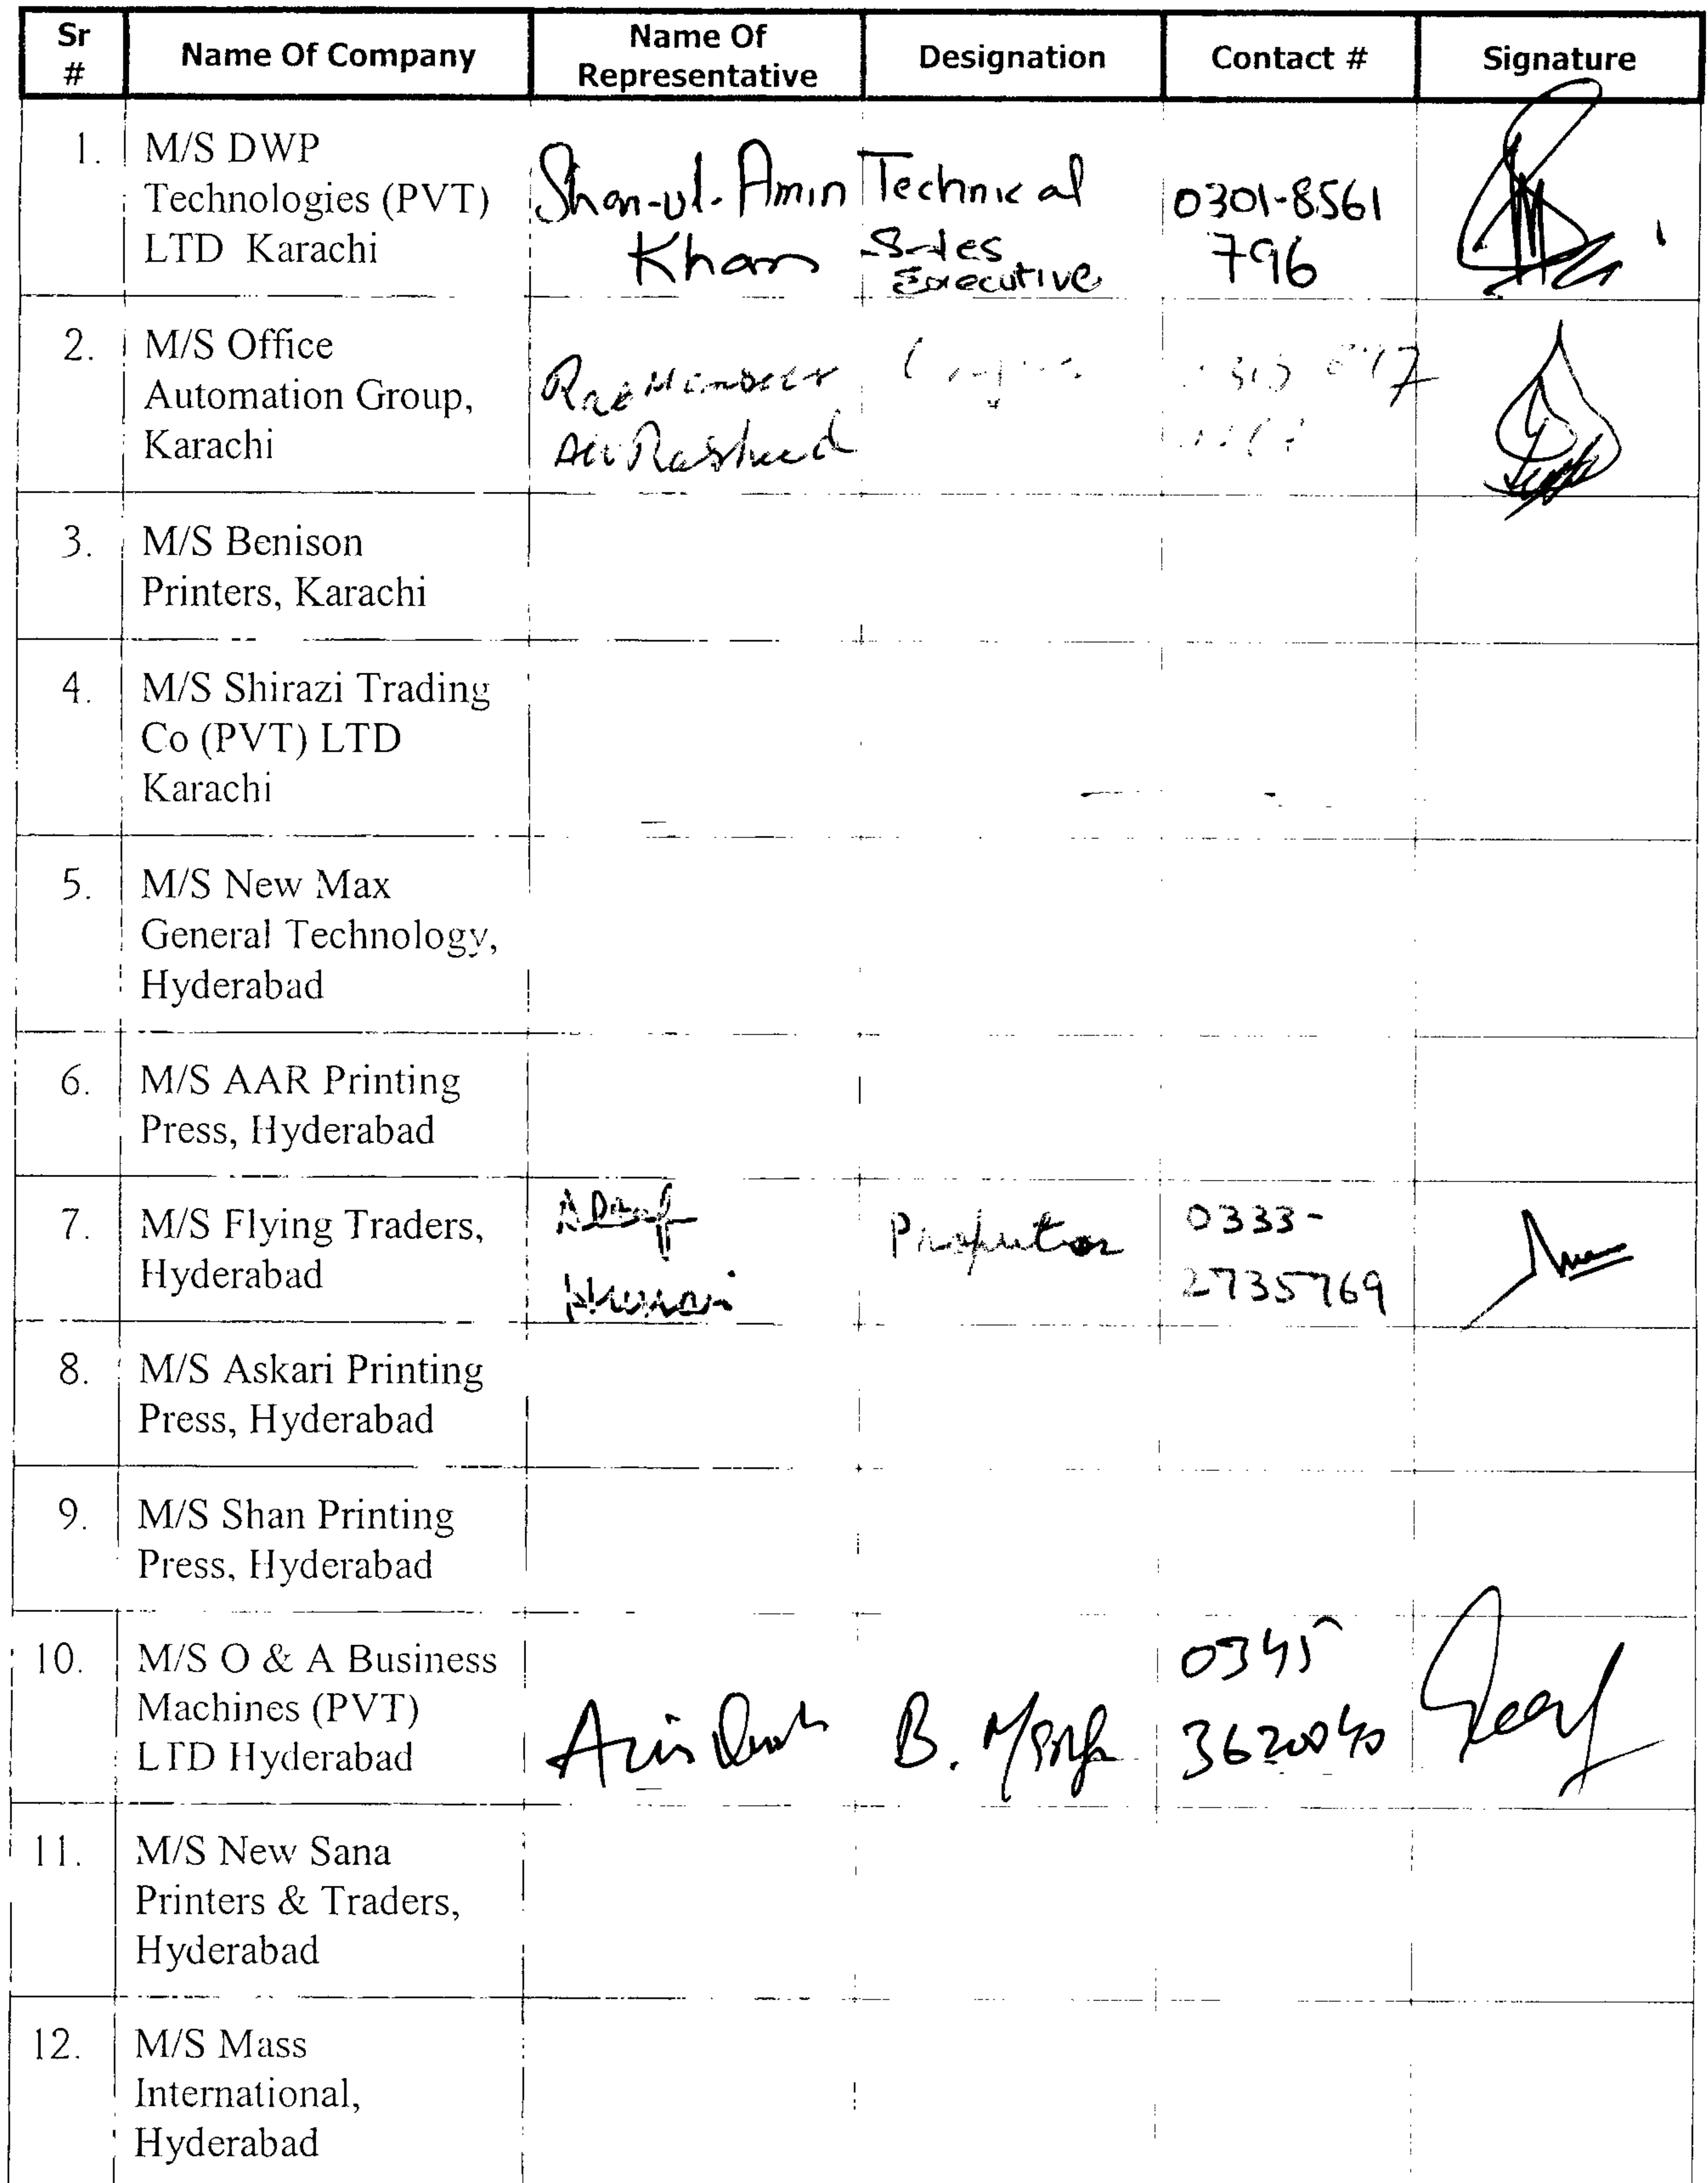 Sr # Name Of Company Name Of Representative Designation Contact # Signature
1. M/S DWP Technologies (PVT) LTD Karachi
Shan-ul-Amin Khan
Technical Sales Executive
0301-8561 796
2. M/S Office Automation Group, Karachi
Ali Rasheed
3. M/S Benison Printers, Karachi
4. M/S Shirazi Trading Co (PVT) LTD Karachi
5. M/S New Max General Technology, Hyderabad
6. M/S AAR Printing Press, Hyderabad
7. M/S Flying Traders, Hyderabad
0333- 2735769
8. M/S Askari Printing Press, Hyderabad
9. M/S Shan Printing Press, Hyderabad
10. M/S O & A Business Machines (PVT) LTD Hyderabad
B.
0345 3620040
11. M/S New Sana Printers & Traders, Hyderabad
12. M/S Mass International, Hyderabad